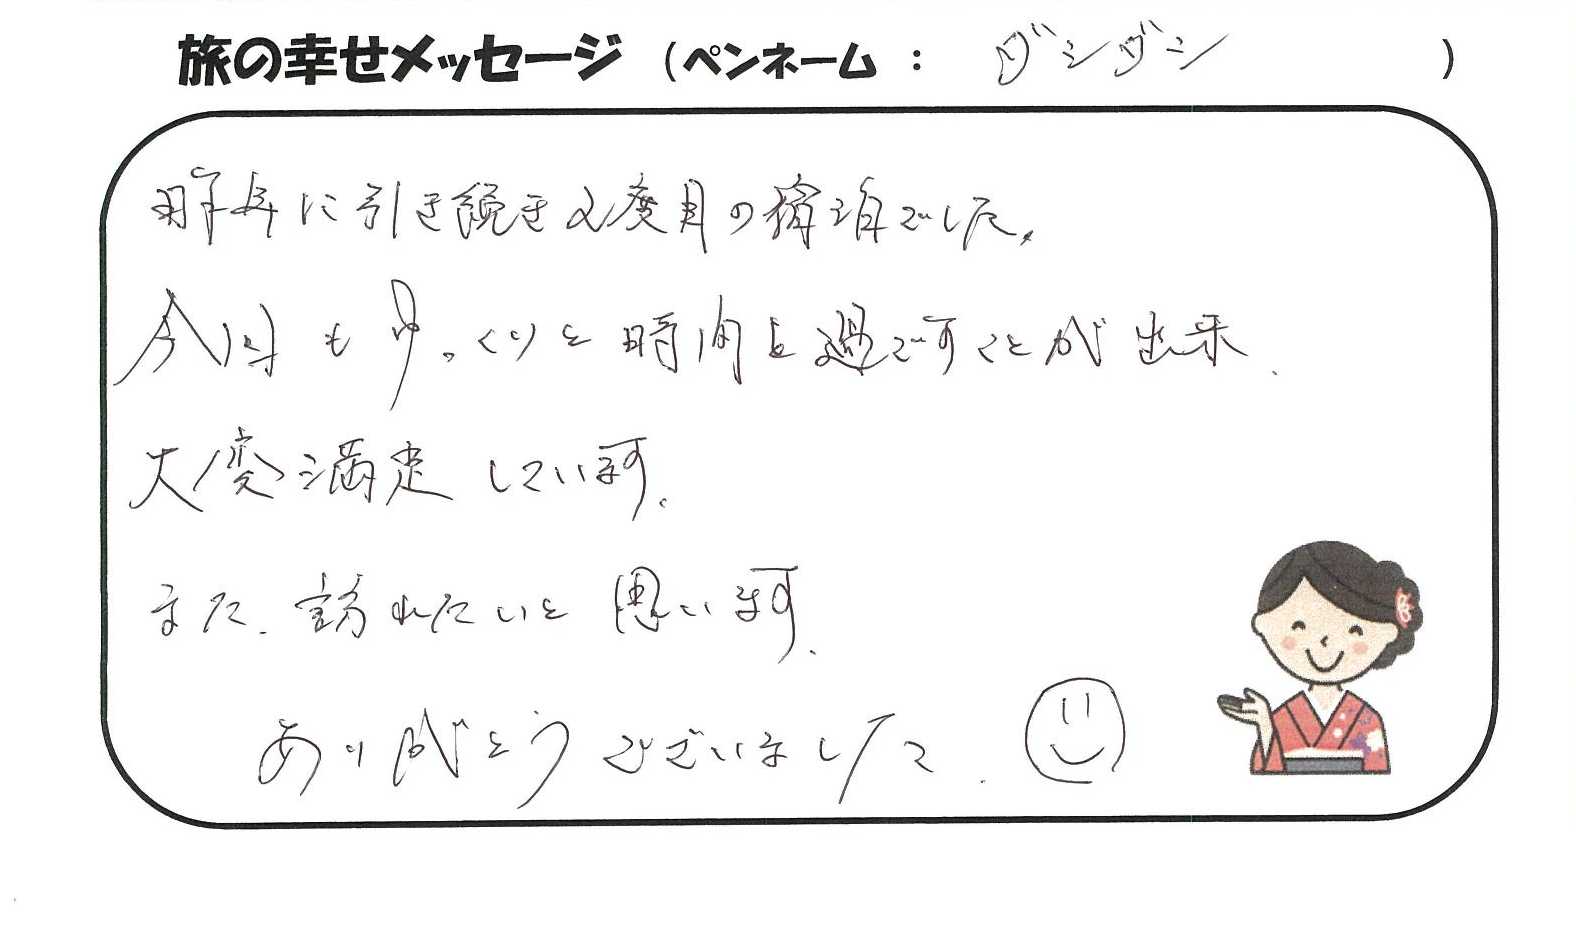 旅の幸せメッセージ (ペンネーム : ダンダン )
昨年に引き続き2度目の宿泊でした。
今回もゆっくりと時間を過ごすことが出来、
大変満足しています。
また、訪れたいと思います。
ありがとうございました。